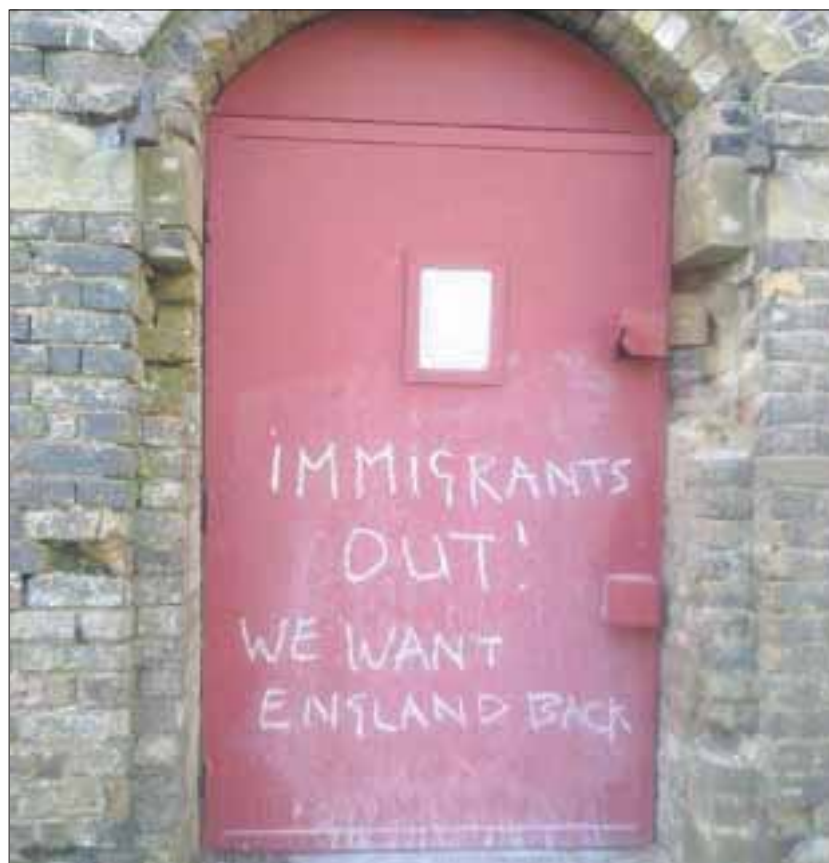 IMMIGRANTS
OUT!
WE WANT
ENGLAND BACK